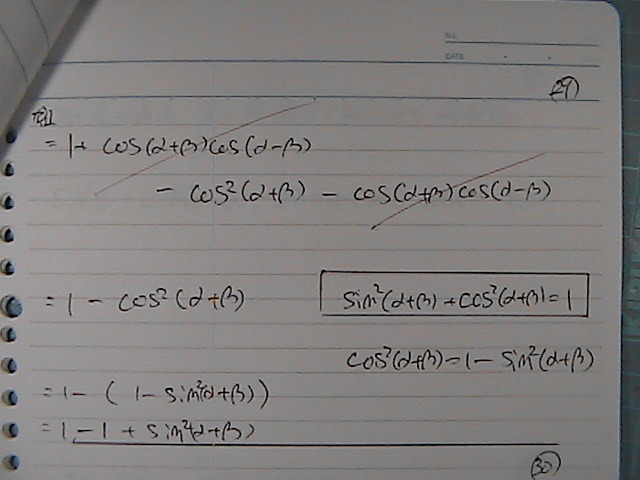 NO.
DATE
29
= 1 + cos(α+β)cos(α-β)
- cos²(α+β) - cos(α+β)cos(α-β)
= 1 - cos²(α+β)
sin²(α+β) + cos²(α+β) = 1
cos²(α+β) = 1 - sin²(α+β)
= 1 - ( 1 - sin²(α+β))
= 1 - 1 + sin²(α+β)
30